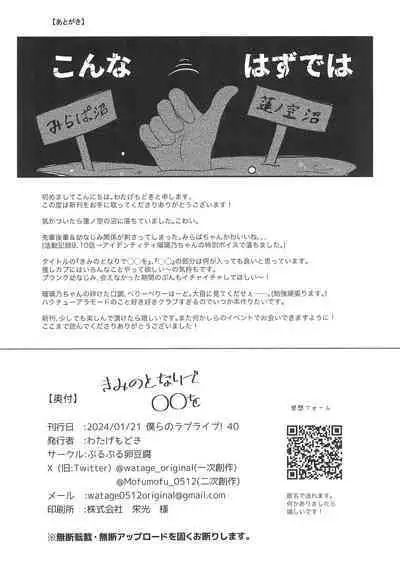 【あとがき】
こんな
はずでは
みらぱ沼
蓮ノ空沼
初めましてこんにちは。わたげもどきと申します。
この度は新刊をお手に取ってくださりありがとうございます!
気がついたら蓮ノ空の沼に落ちていました。こわい。
先輩後輩&幼なじみ関係が刺さってしまった。みらぱちゃんかわいいね、、、
(活動記録9、10話→アイデンティティ瑠璃乃ちゃんの特別ボイスで落ちました。)
タイトルの『きみのとなりで○○を』、『○○』の部分は何が入っても良いと思っています。
推しカプにはいろんなことやって欲しい〜の気持ちです。
ブランク幼なじみ、会えなかった期間のぶんもイチャイチャしてほしい〜!
瑠璃乃ちゃんの砕けた口調、べりーべりーはーど。大目に見てくだせぇ……。(勉強頑張ります。)
ハクチューアラモードのこと好き好きクラブすぎるのでいつか本作りたいです。
新刊、少しでも楽しんで頂けたら嬉しいです。また何かしらのイベントでお会いできますように!
ここまで読んでくださりありがとうございました!
きみのとなりで
○○を
【奥付】
感想フォーム
刊行日 :2024/01/21 僕らのラブライブ! 40
発行者 :わたげもどき
サークル:ぷるぷる卵豆腐
X (旧:Twitter) @watage_original(一次創作)
@Mofumofu_0512(二次創作)
メール :watage0512original@gmail.com
印刷所 :株式会社 栄光 様
匿名で送れます。
何かありましたら
嬉しいです!
※無断転載・無断アップロードを固くお断りします。